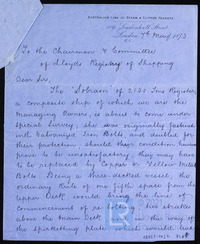 AUSTRALIAN LINE OF STEAM & CLIPPER PACKETS
Leadenhall Street
London 7th May 1873
To the Chairman & Committee
of Lloyds Registry of Shipping
Dear Sirs,
The "Sobraon" of 2131 Tons Register
a composite ship of which we are the
Managing Owners, is about to come under
Special Survey, She was originally fastened
with Galvanized Iron Bolts and doubled for
their protection, should their condition
prove to be unsatisfactory, they may have
to be replaced by Copper or Yellow Metal
Bolts. Being a three decked vessel, the
ordinary Rule of one fifth space from the
Upper Deck would bring the line of
commencement of
above the Main Deck in the way of
the Spirketting plank which would lead